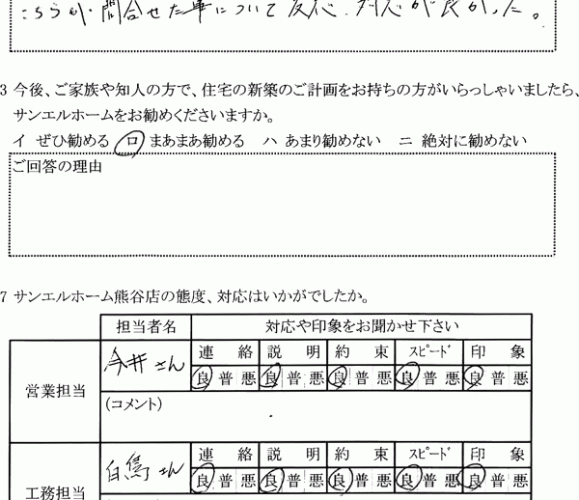 こちらが問合せた事について反応、対応が良かった。
3 今後、ご家族や知人の方で、住宅の新築のご計画をお持ちの方がいらっしゃいましたら、
サンエルホームをお勧めくださいますか。
イ ぜひ勧める ロ まあまあ勧める ハ あまり勧めない ニ 絶対に勧めない
ご回答の理由
7 サンエルホーム熊谷店の態度、対応はいかがでしたか。
担当者名 対応や印象をお聞かせ下さい
営業担当 今井さん 連絡 説明 約束 スピード 印象
良 普 悪 良 普 悪 良 普 悪 良 普 悪 良 普 悪
(コメント)
工務担当 白鳥さん 連絡 説明 約束 スピード 印象
良 普 悪 良 普 悪 良 普 悪 良 普 悪 良 普 悪